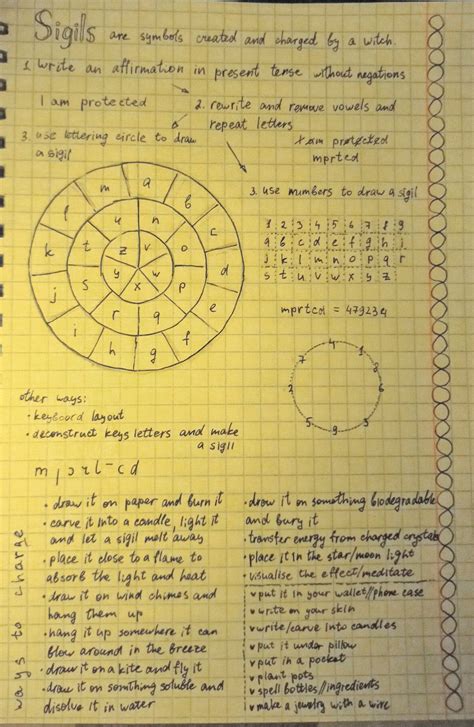 Sigils are symbols created and charged by a witch.
1. write an affirmation in present tense without negations
I am protected
2. rewrite and remove vowels and
repeat letters
I am protected
mprtcd
3. use lettering circle to draw
a sigil
3. use numbers to draw a sigil
a b c d e f g h i j k l m
n o p q r s t u
v w x y z
1 2 3 4 5 6 7 8 9
a b c d e f g h i
j k l m n o p q r
s t u v w x y z
mprtcd = 479234
4 1 8 6 3 9 5 2 7
other ways:
• keyboard layout
• deconstruct keys letters and make
a sigil
ways to charge
• draw it on paper and burn it
• carve it into a candle, light it
and let a sigil melt away
• place it close to a flame to
absorb the light and heat
• draw it on wind chimes and
hang them up
• hang it up somewhere it can
blow around in the breeze
• draw it on a kite and fly it
• draw it on somthing soluble and
disolve it in water
• draw it on something biodegradable
and bury it
• transfer energy from charged crystals
• place it in the star/moon light
• visualise the effect/meditate
v put it in your wallet//phone case
v write on your skin
v write/carve into candles
v put it under pillow
v put in a pocket
v plant pots
v spell bottles//ingredients
v make a jewelry with a wire